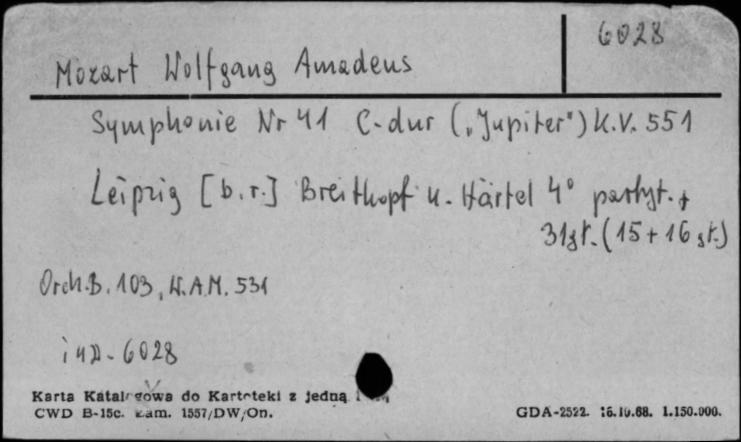 6028
Mozart Wolfgang Amadeus
Symphonie Nr 41 C-dur („Jupiter") K.V. 551
Leipzig [b.r.] Breitkopf u. Härtel 4° partyt. +
31 gł. (15 + 16 gł.)
Orch.B. 103, W.A.M. 531
inw. 6028
Karta Katalogowa do Kartoteki z jedną
CWD B-15c. Zam. 1557/DW/On.
GDA-2522. 16.10.68. 1.150.000.